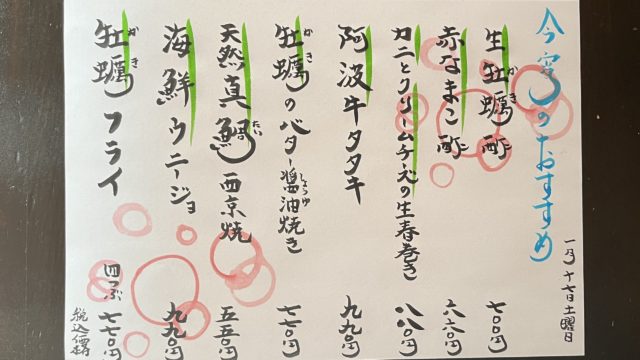 今宵のおすすめ
一月十七日土曜日
生牡蠣酢 七〇〇円
赤なまこ酢 六六〇円
カニとクリームチーズの生春巻き 八八〇円
阿波牛タタキ 九九〇円
牡蠣のバター醤油焼き 七七〇円
天然真鯛西京焼 五五〇円
海鮮ウニージョ 九九〇円
牡蠣フライ 四つぶ 七七〇円
税込価格